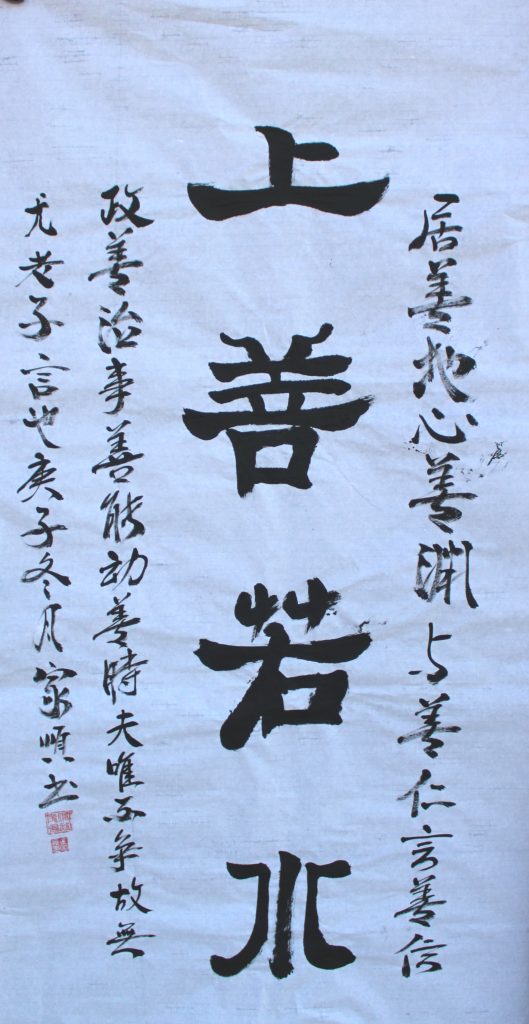 上善若水
居善地心善渊与善仁言善信
政善治事善能动善時夫唯不争故無
尤老子言也庚子冬月家順书